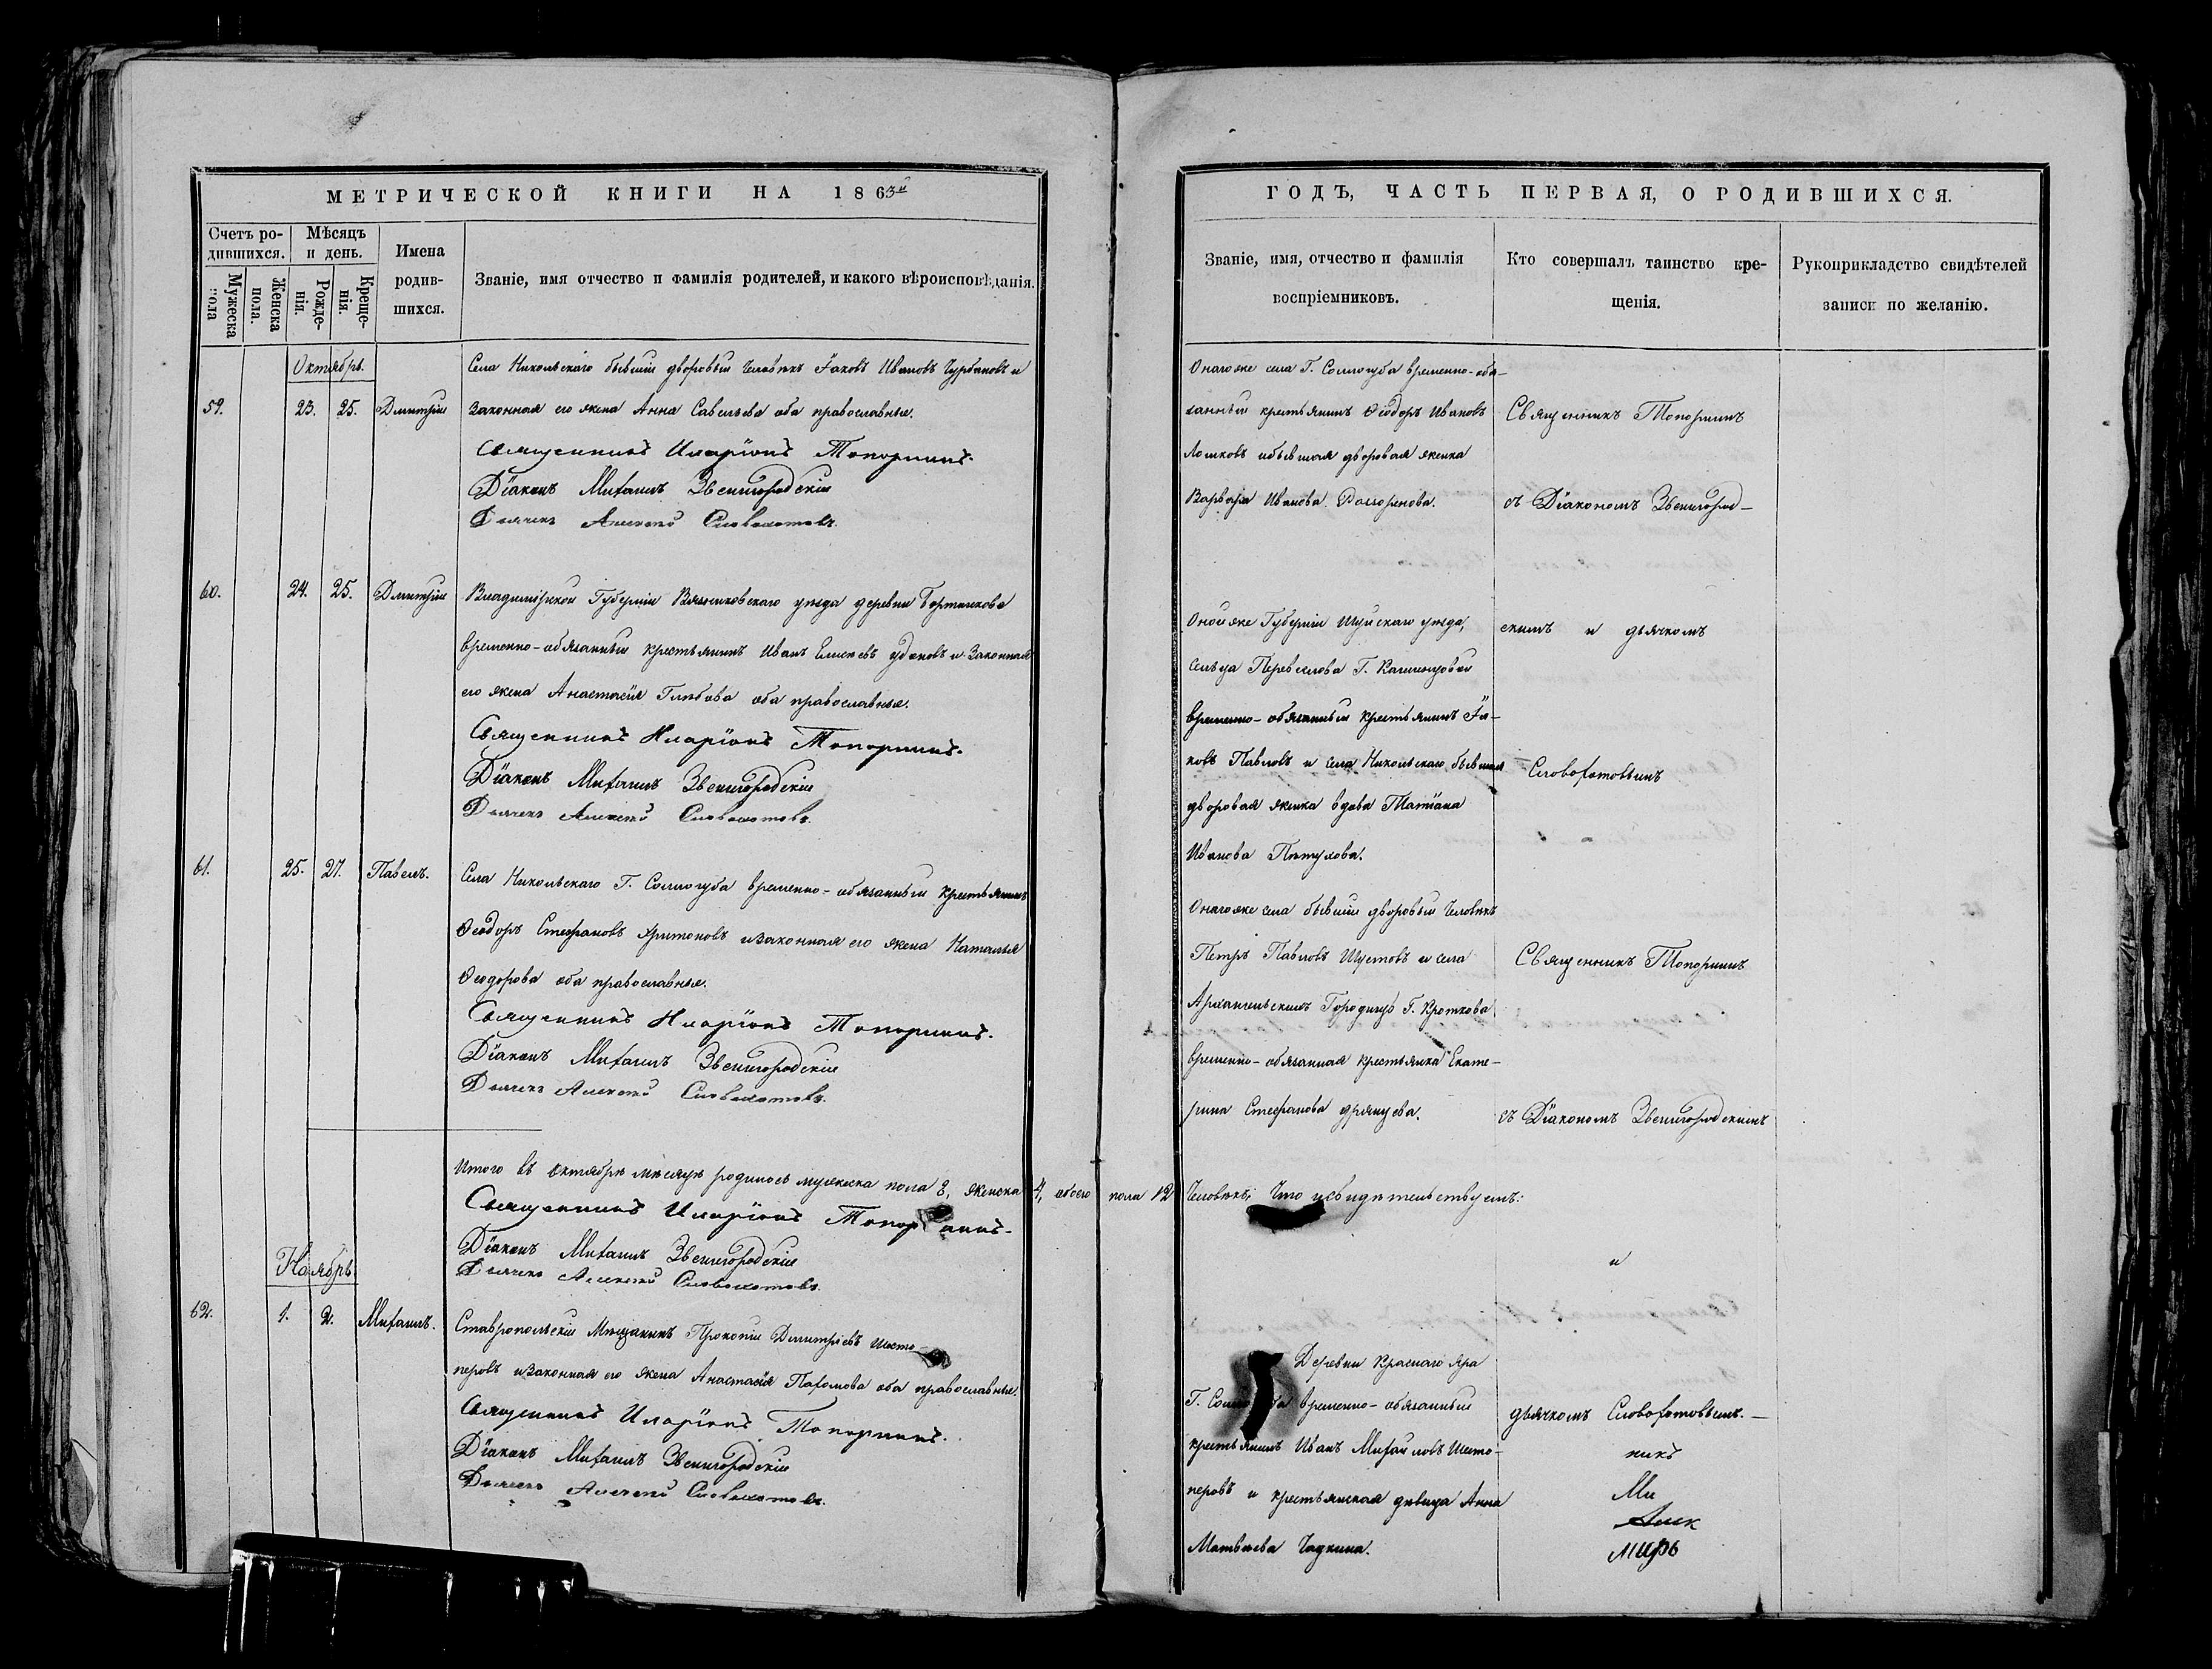 МЕТРИЧЕСКОЙ КНИГИ НА 1863й
Счетъ ро-
дившихся.
Мѣсяцъ
и день.
Имена
родив-
шихся.
Званіе, имя отчество и фамилія родителей, и какого вѣроисповѣданія.
Мужеска
пола
Женска
пола.
Рожде-
нія.
Креще-
нія.
Октябрь.
Села Никольскаго бывшій дворовый человѣкъ Іаковъ Ивановъ Чурбановъ и
59. 23. 25. Дмитрій законная его жена Анна Савельева оба православные.
Священникъ Иларіонъ Топорнинъ.
Діаконъ Михаилъ Звенигородскій
Дьячекъ Алексѣй Словохотовъ.
60. 24. 25. Дмитрій Владимірской Губерніи Вязниковскаго уѣзда деревни
временно-обязанный крестьянинъ Иванъ Елисеевъ и законная
его жена Анастасія Глѣбова оба православные.
Священникъ Иларіонъ Топорнинъ.
Діаконъ Михаилъ Звенигородскій
Дьячекъ Алексѣй Словохотовъ.
61. 25. 27. Павелъ. Села Никольскаго Г. Соллогуба временно-обязанный крестьянинъ
Ѳеодоръ Стефановъ Хритоновъ и законная его жена Наталья
Ѳеодорова оба православные.
Священникъ Иларіонъ Топорнинъ.
Діаконъ Михаилъ Звенигородскій
Дьячекъ Алексѣй Словохотовъ.
Итого въ октябрѣ мѣсяцѣ родилось мужеска пола 8, женска 4, обоего пола 12 человѣкъ, Что и свидѣтельствуемъ:
Священникъ Иларіонъ Топорнинъ.
Діаконъ Михаилъ Звенигородскій
Дьячекъ Алексѣй Словохотовъ.
Ноябрь
62. 1. 2. Михаилъ. Ставропольскій Мѣщанинъ Прокопій Дмитріевъ Шесто-
перовъ и законная его жена Анастасія Пахомова оба православные.
Священникъ Иларіонъ Топорнинъ.
Діаконъ Михаилъ Звенигородскій
Дьячекъ Алексѣй Словохотовъ.
ГОДЪ, ЧАСТЬ ПЕРВАЯ, О РОДИВШИХСЯ.
Званіе, имя, отчество и фамилія
воспріемниковъ.
Кто совершалъ таинство кре-
щенія.
Рукоприкладство свидѣтелей
записи по желанію.
Онагоже села Г. Соллогуба временно-обя-
занный крестьянинъ Ѳеодоръ Ивановъ
Ломковъ и бывшая дворовая женка
Варвара Иванова
Священникъ Топорнинъ
съ Діакономъ Звенигород-
Оной же Губерніи Шуйскаго уѣзда,
сельца Перевезлова Г. Калинцовой
временно-обязанный крестьянинъ Іа-
ковъ Павловъ и села Никольскаго бывшая
дворовая женка вдова Татіана
Иванова Пѣтухова.
скимъ и дьячкомъ
Словохотовымъ
Онагоже села бывшій дворовый человѣкъ
Петръ Павловъ Шустовъ и села
Архангельскихъ Городищъ Г. Кроткова
временно-обязанная крестьянка Екате-
рина Стефанова
Священникъ Топорнинъ
съ Діакономъ Звенигородскимъ
и
Деревни Краснаго Яра
Г. Соллогуба временно-обязанный
крестьянинъ Иванъ Михаиловъ Шесто-
перовъ и крестьянская дѣвица Анна
Матвѣева Чадкина.
дьячкомъ Словохотовымъ.-
никъ
Ми
Алек